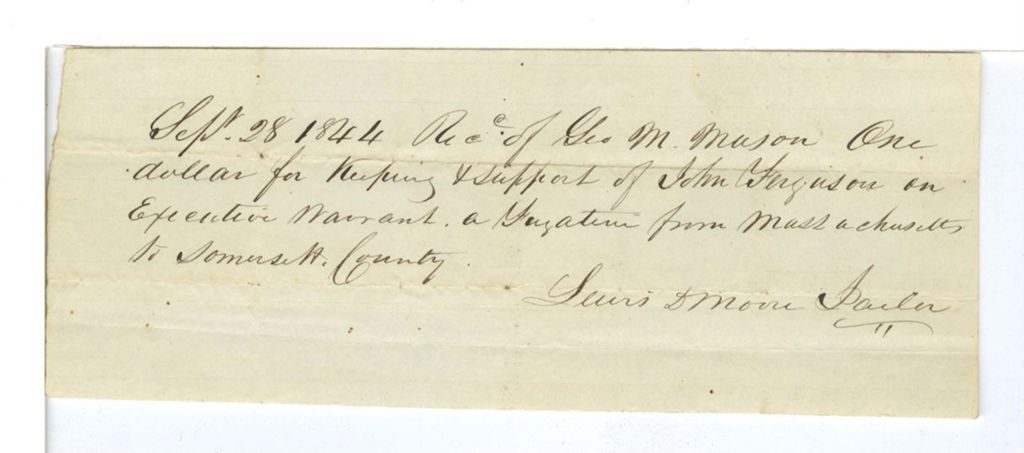 Sept. 28 1844 Rec.d of Geo M. Mason One
dollar for Keeping & support of John Ferguson on
Executive Warrant. a Fugative from Massachusetts
to Somersett. County.
Lewis D Moore Jailor